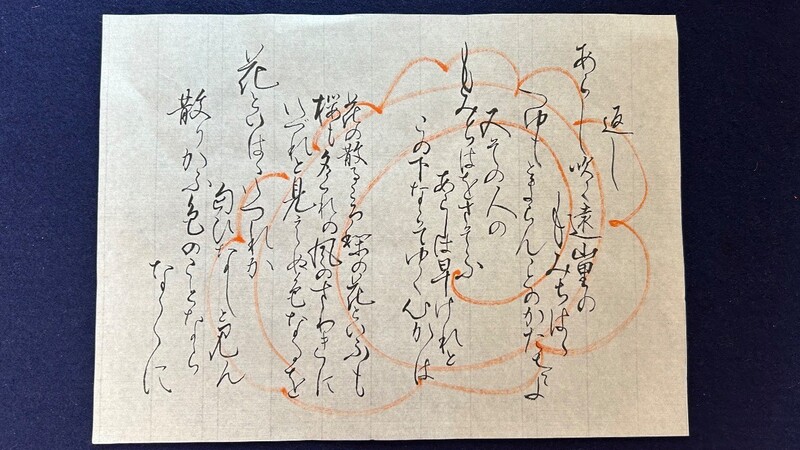 返し
あらし吹く遠山里の
もみちはゝ
つゆもとまらんことのかたさよ
又その人の
もみちはをさそふ
あらしは早けれと
この下ならてゆく心かは
花の散るころ梨の花といふも
桜も夕くれの風のさわきに
いつれと見えぬ色なるを
花といはゝいつれか
匂ひなしと見ん
散りかふ色のことなら
なくに